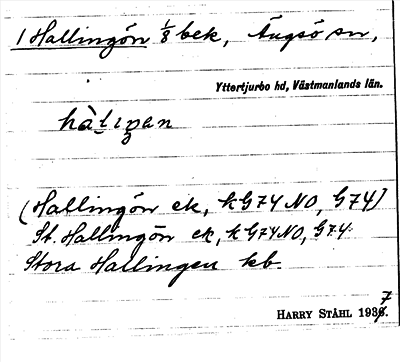 1 Hallingön 1/8 bek, Ängsö sn,
Yttertjurbo hd, Västmanlands län.
(Hallingön ek, kG74NO, G74)
St. Hallingön ek, kG74NO, G74.
Stora Hallingen kb.
HARRY STÅHL 1937.